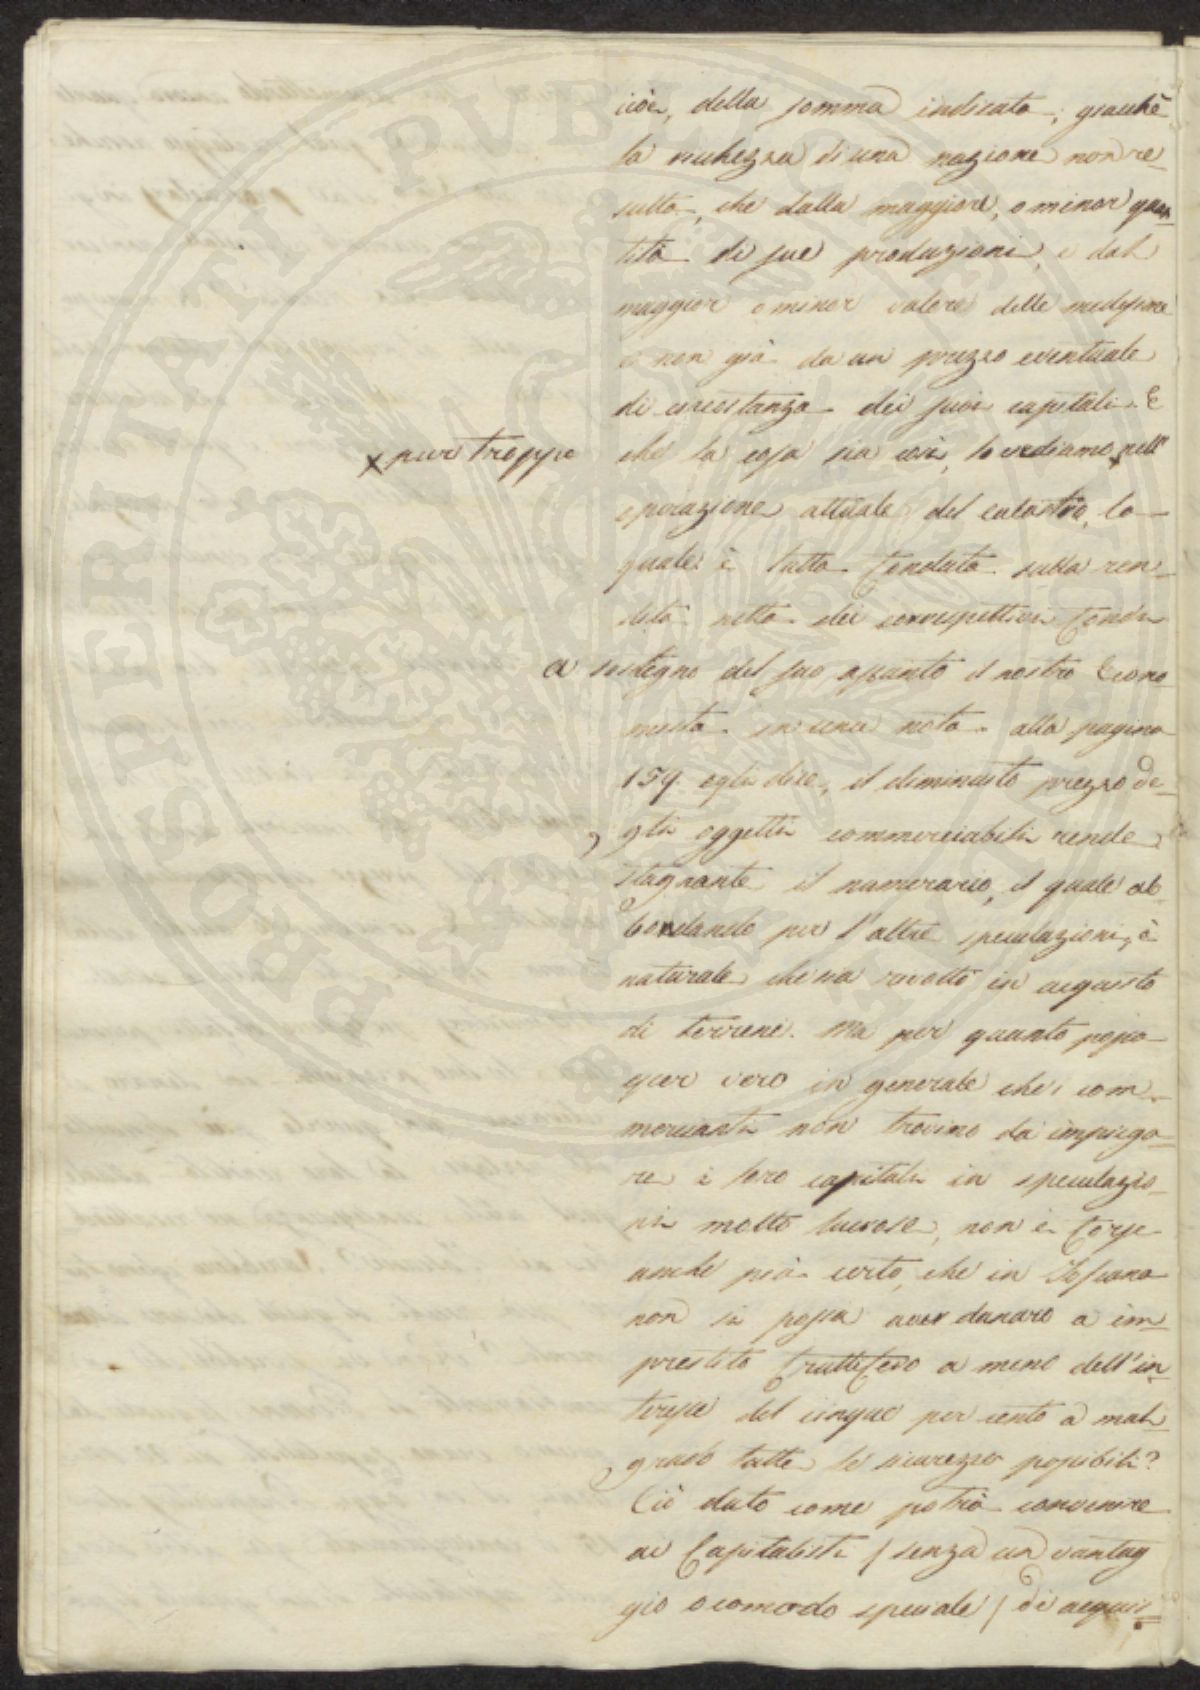 cioè, della somma indicata; giacchè
la ricchezza di una nazione non re-
sulta, che dalla maggiore, o minor quan
tità di sue produzioni, e dal
maggior o minor valore delle medesime
e non già da un prezzo eventuale
di circostanza dei suoi capitali. E
che la cosa sia così, lo vediamo x nell'
x pur troppo
operazione attuale del catastro, la
quale è tutta fondata sulla ren-
dita netta dei correspettivi fondi
a sostegno del suo assunto il nostro Econo-
mista in una nota alla pagina
159. egli dice, il diminuito prezzo de-
gli oggetti commerciabili rende
stagnante il numerario, il quale ab
bondando per l'altre speculazioni, è
naturale che sia rivolto in acquisto
di terreni. Ma per quanto possa
esser vero in generale che i com-
mercianti non trovino da impiega-
re i loro capitali in speculazio-
ni molto lucrose, non è forse
anche più certo, che in Toscana
non si possa aver danaro a im-
prestito fruttifero a meno dell'in
teresse del cinque per cento a mal-
grado tutte le sicurezze possibili?
Ciò dato come potrà convenire
ai Capitalisti / senza un vantag
gio o comodo speciale / di acquis=
PROSPERITATI PVBLICAE